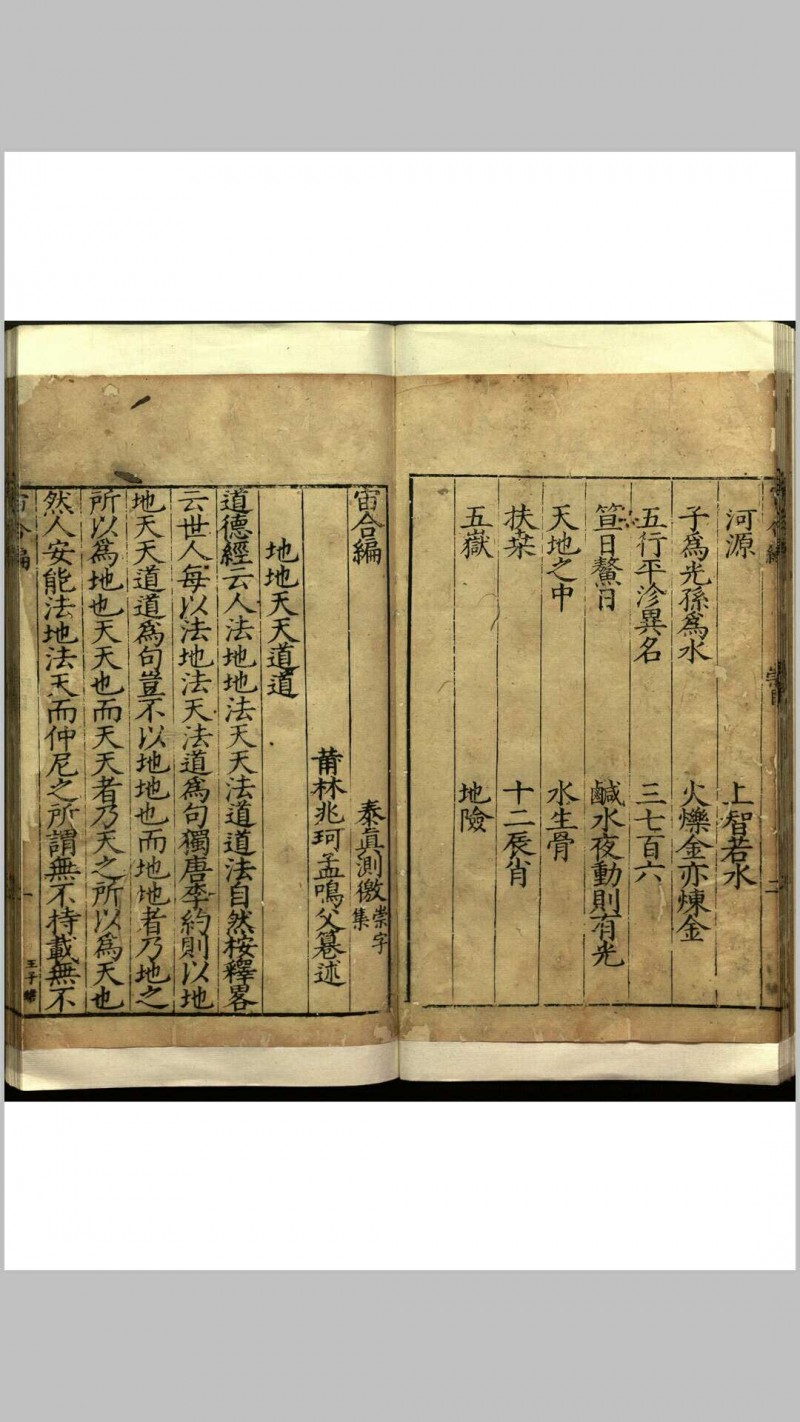 河源　上智若水
子爲光孫爲水　火爍金亦煉金
五行平沴異名　三七百六
日鰲日　鹹水夜動則有光
天地之中　水生骨
扶桒　十二辰肖
五嶽　地險
宙合編　泰眞測微崇字集
莆林兆珂孟鳴父纂述
地地天天道道
道德經云人法地地法天天法道道法自然桉釋畧
云世人每以法地法天法道爲句獨唐李約則以地
地天天道道爲句豈不以地地也而地地者乃地之
所以爲地也天天也而天天者乃天之所以爲天也
然人安能法地法天而仲尼之所謂無不持載無不
宙合編　一